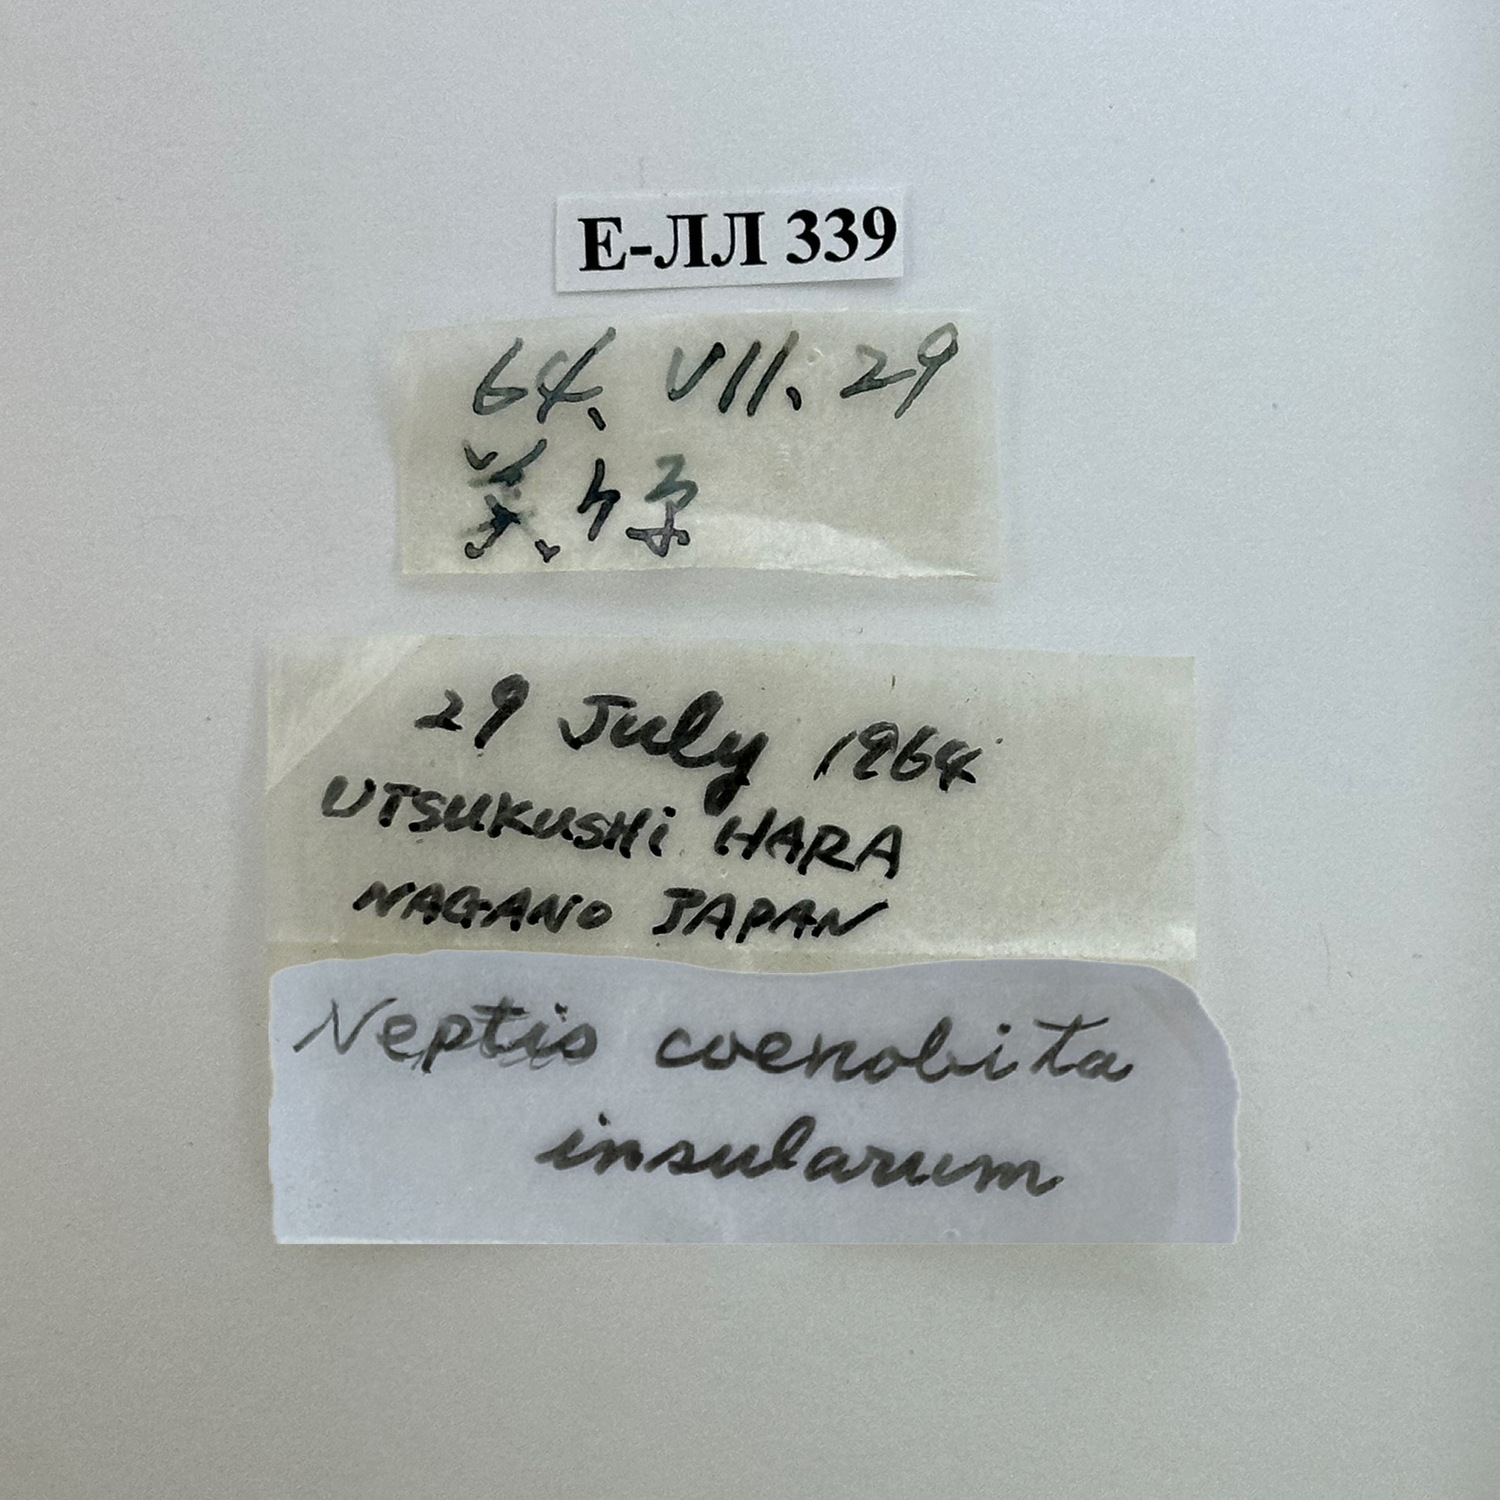 Е-ЛЛ 339
64. VII. 29
美ヶ原
29 July 1964
UTSUKUSHi HARA
NAGANO JAPAN
Neptis coenobita
insularum